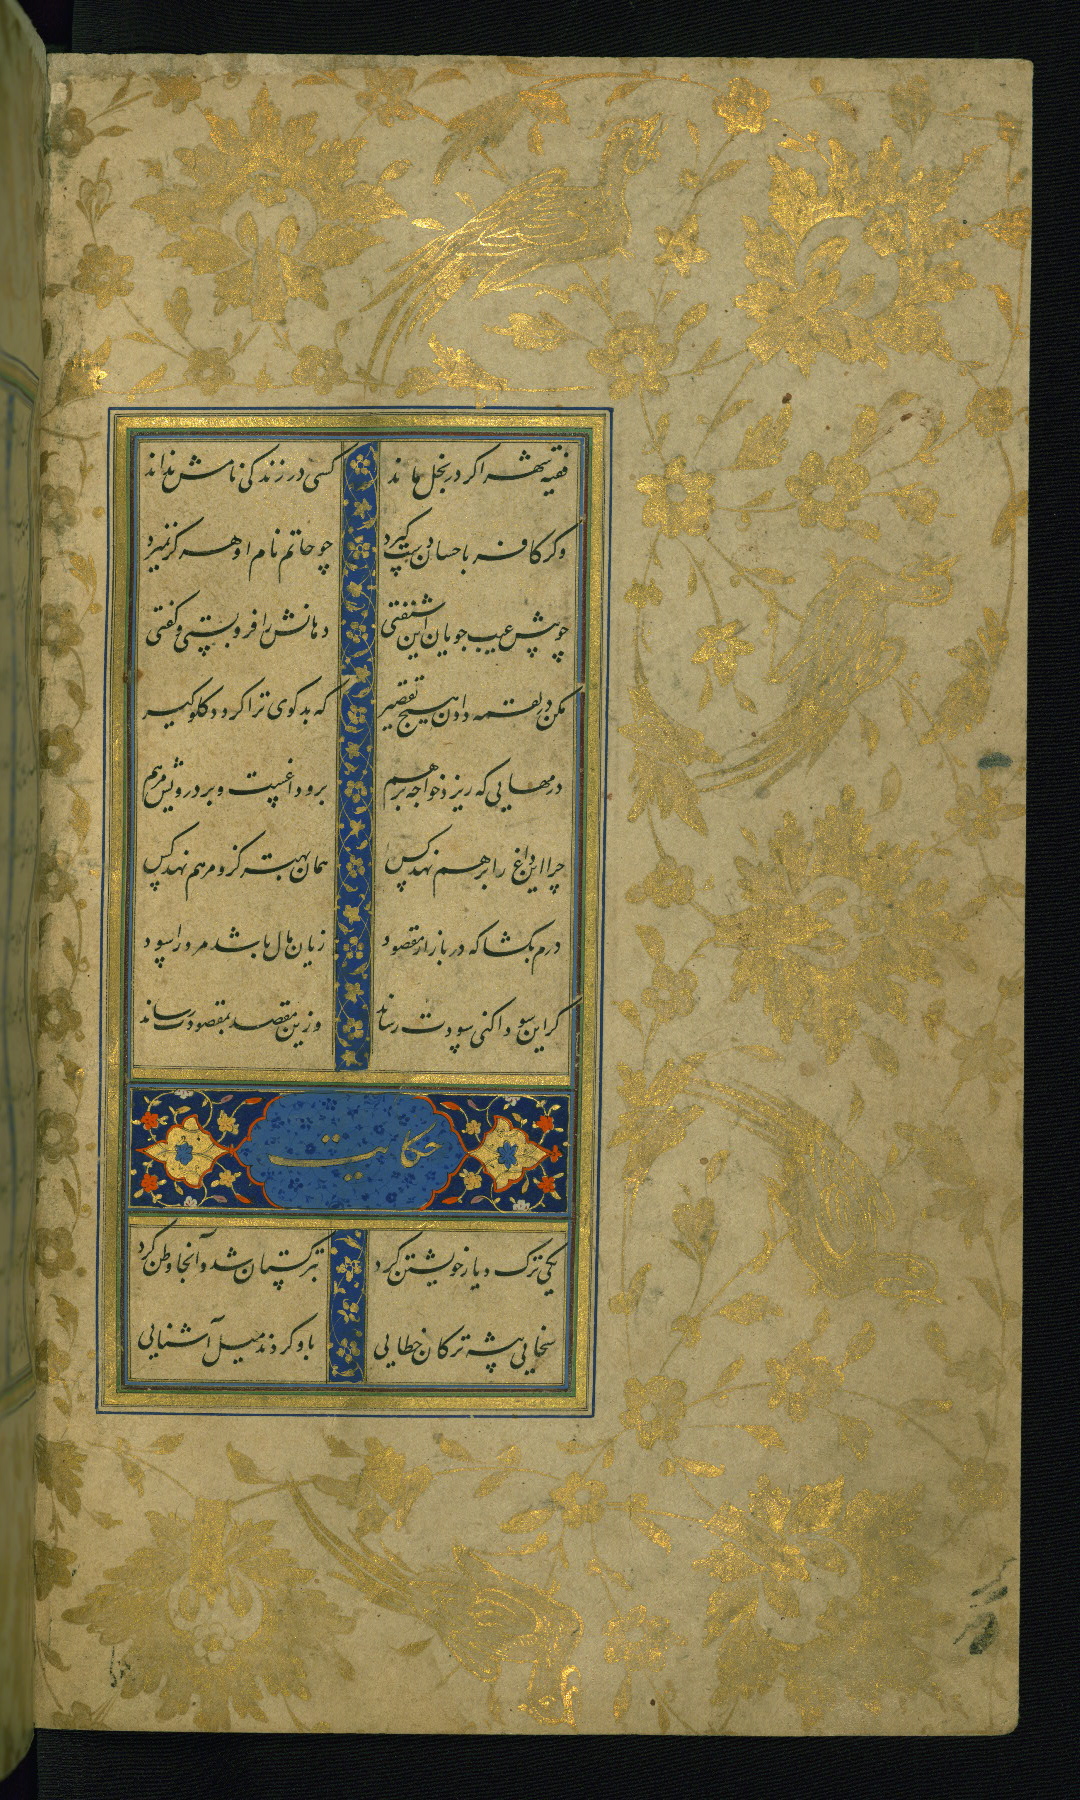 فقیه شهر اکر در بخل ماند کسی در زندکی نامش نداند
وکر کافر باحسان دست کیرد چو حاتم نام او هرکز نمیرد
چو پیش عیب جویان این شنفتی دهانش را فرو بستی و کفتی
مکن در لقمه دادن هیچ تقصیر که بدکوی ترا کردد کلوکیر
درمهایی که ریزد خواجه بر هم برو داغیست و بر درویش مرهم
چرا این داغ را بر هم نهد کس همان بهتر کزو مرهم نهد کس
درم بکشا که در بازار مقصود زیان مال باشد مرد را سود
کر این سودا کنی سودت رساند وزین مقصد بمقصودت رساند
حکایت
یکی ترک دیار خویشتن کرد بترکستان شد و آنجا وطن کرد
سخایی پیشه ترکان خطایی باو کردند میل آشنایی